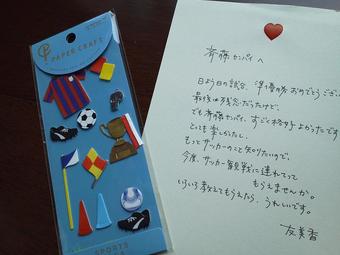 PAPER CRAFT
斉藤センパイへ
日よう日の試合、準優勝おめでとうござい
最後は残念だったけど、
でも斉藤センパイ、すごく格好よかったです
とても楽しかったし、
もっとサッカーのこと知りたいので、
今度、サッカー観戦に連れてって
もらえませんか。
いろいろ教えてもらえたら、うれしいです。
友美香
SPORTS